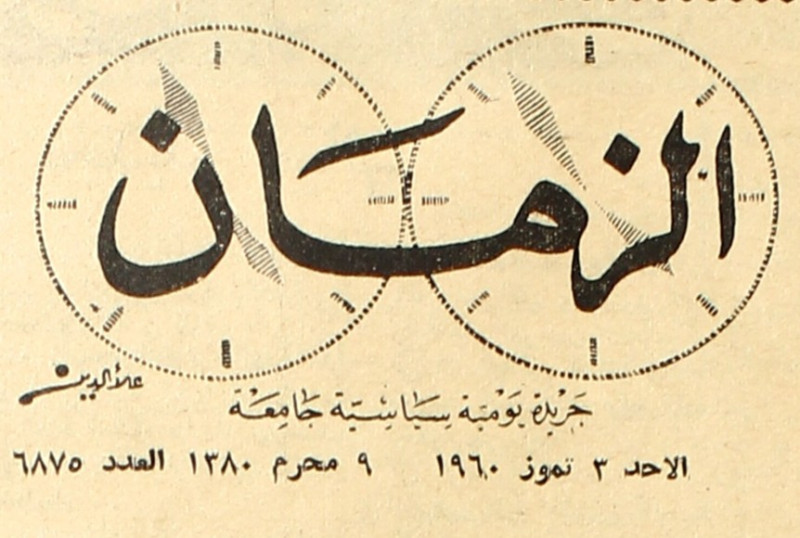 الزمان
علاءالدين
جَريدة يَوْميّة سيَاسيّة جَامِعَة
الاحد ٣ تموز ١٩٦٠ ٩ محرم ١٣٨٠ العدد ٦٨٧٥